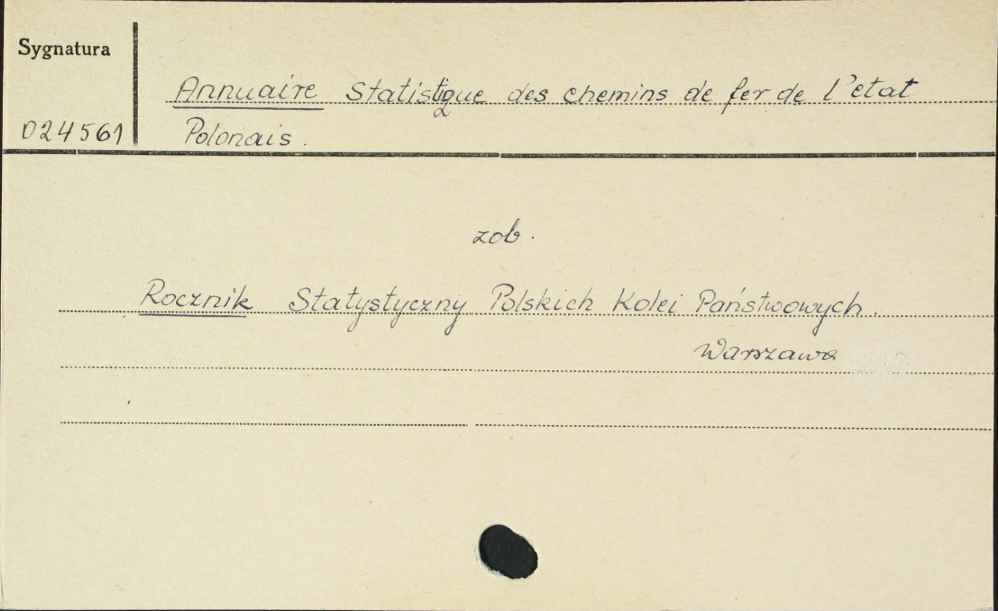 Sygnatura
Annuaire Statistique des chemins de fer de l'état
024561 Polonais.
zob.
Rocznik Statystyczny Polskich Kolei Państwowych.
Warszawa